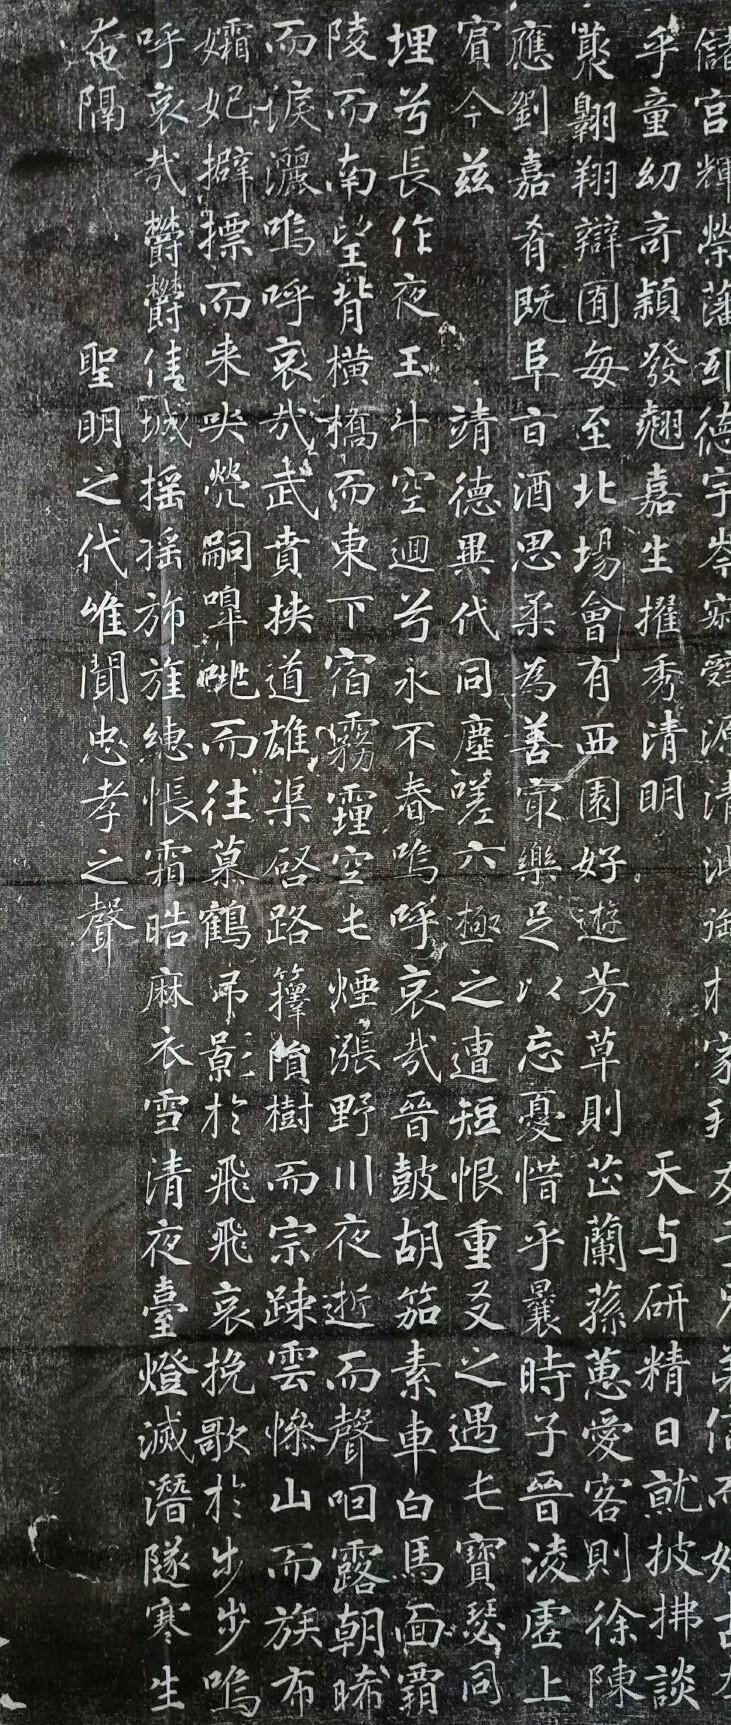 儲宮輝榮藩 德宇岑寂 源清 家
乎童幼奇穎發翹嘉生擢秀清明 天与研精日就披拂談
藂翺翔辯囿每至北場會有西園好遊芳草則芷蘭蓀蕙愛客則徐陳
應劉嘉肴既阜旨酒思柔為善冣樂足以忘憂惜乎曩時子晉淩虛上
賓今茲 靖德異代同塵嗟六極之遭短恨重爻之遇屯寶瑟同
埋兮長作夜玉斗空迴兮永不春嗚呼哀哉晉鼓胡笳素車白馬面霸
陵而南望背橫橋而東下宿霧霾空屯煙漲野川夜逝而聲咽露朝晞
而淚灑嗚呼哀哉武賁挾道雄渠啓路籜隕樹而宗踈雲慘山而族布
孀妃擗摽而来 煢嗣嘷咷而往慕鶴帰影於飛飛哀挽歌於步步嗚
呼哀哉欝欝佳城摇摇旆旌繐帳霜皓麻衣雪清夜臺燈滅潛隧寒生
奄隔 聖明之代唯聞忠孝之聲